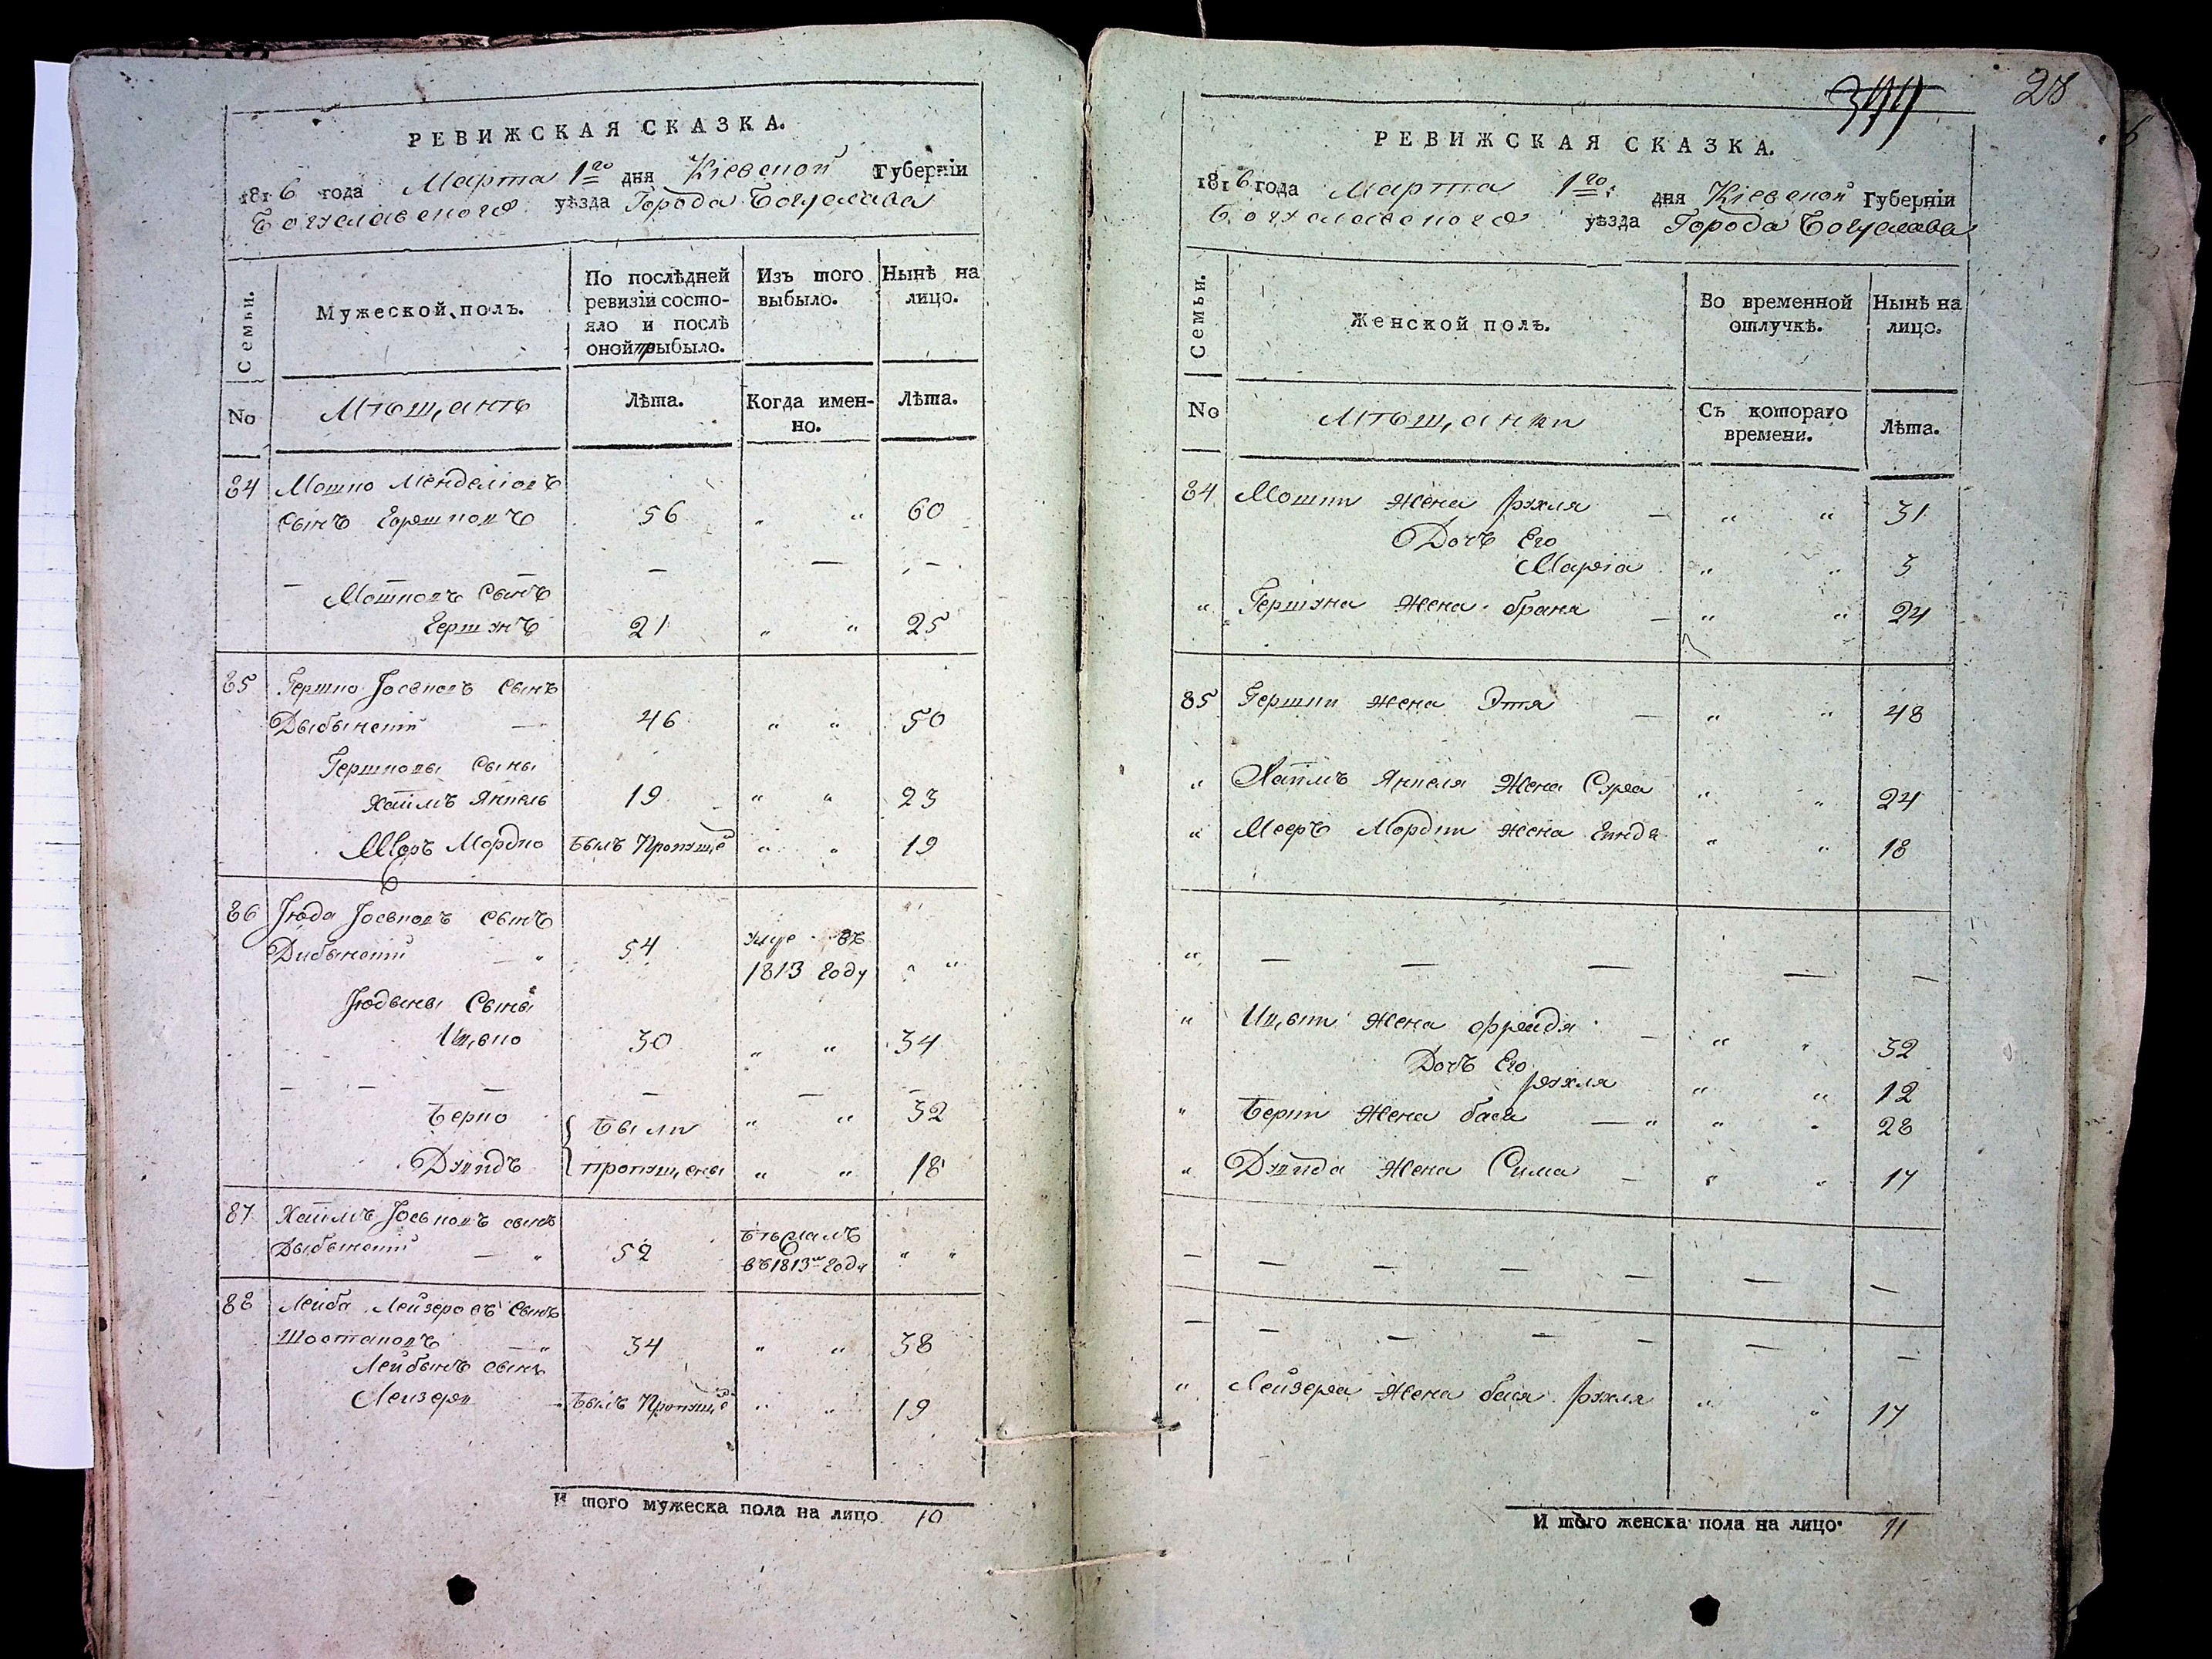 РЕВИЖСКАЯ СКАЗКА.
1816 года Марта 1го дня Кіевской Губерніи
Богуславского уѣзда Города Богуслава
Семьи.
Мужеской полъ.
По послѣдней ревизіи состо-
яло и послѣ
оной прыбыло.
Изъ того
выбыло.
Нынѣ на
лицо.
No
Мѣщанѣ
Лѣта.
Когда имен-
но.
Лѣта.
84 Мошко Менделіовъ
Сынъ 56 „ „ 60
— — — — —
Мошковъ Сынъ
Гершунъ 21 „ „ 25
85 Гершко Іоськовъ Сынъ
Дыбынскій — 46 „ „ 50
Гершковы Сыны
Хаймъ Янкель 19 „ „ 23
Меоръ Мордко былъ Пропуще „ „ 19
86 Іюда Іоськовъ Сынъ
Дибынскій „ 54 умре въ
1813 году „ „
Іюдыны Сыны
Ицько 30 „ „ 34
— — — — — —
Берко Были „ „ 32
Дувидъ пропущены „ „ 18
87 Хаймъ Іоськовъ сынъ
Дыбынскій — „ 52 бѣжалъ
въ 1813м годи „ „
88 Лейба Лейзеровъ Сынъ
Шостаковъ — „ 34 „ „ 38
Лейбынъ сынъ
Лейзеръ былъ Пропуще „ „ 19
И того мужеска пола на лицо 10
344 28
РЕВИЖСКАЯ СКАЗКА.
1816 года Марта 1го: дня Кіевской Губерніи
Богуславского уѣзда Города Богуслава
Семьи.
Женской полъ.
Во временной
отлучкѣ.
Нынѣ на
лицо.
No
Мѣщанки
Съ котораго
времени.
Лѣта.
84 Мошки жена Рухля — „ „ 31
Дочь Его
Маріа „ „ 3
„ Гершуна жена браня — „ „ 24
85 Гершки жена Этя — „ „ 48
„ Хаймъ Янкеля Жена Сура „ „ 24
„ Мееръ Мордки жена Гинда „ „ 18
„ — — — — —
„ Ицьки жена фрейда — „ „ 32
Дочь Его
Рухля „ „ 12
„ Берки жена бася — „ „ „ 28
„ Дувида жена Сима — „ „ 17
— — — — — — —
— — — — — — —
„ Лейзера жена бася Рухля „ „ 17
И того женска пола на лицо 11